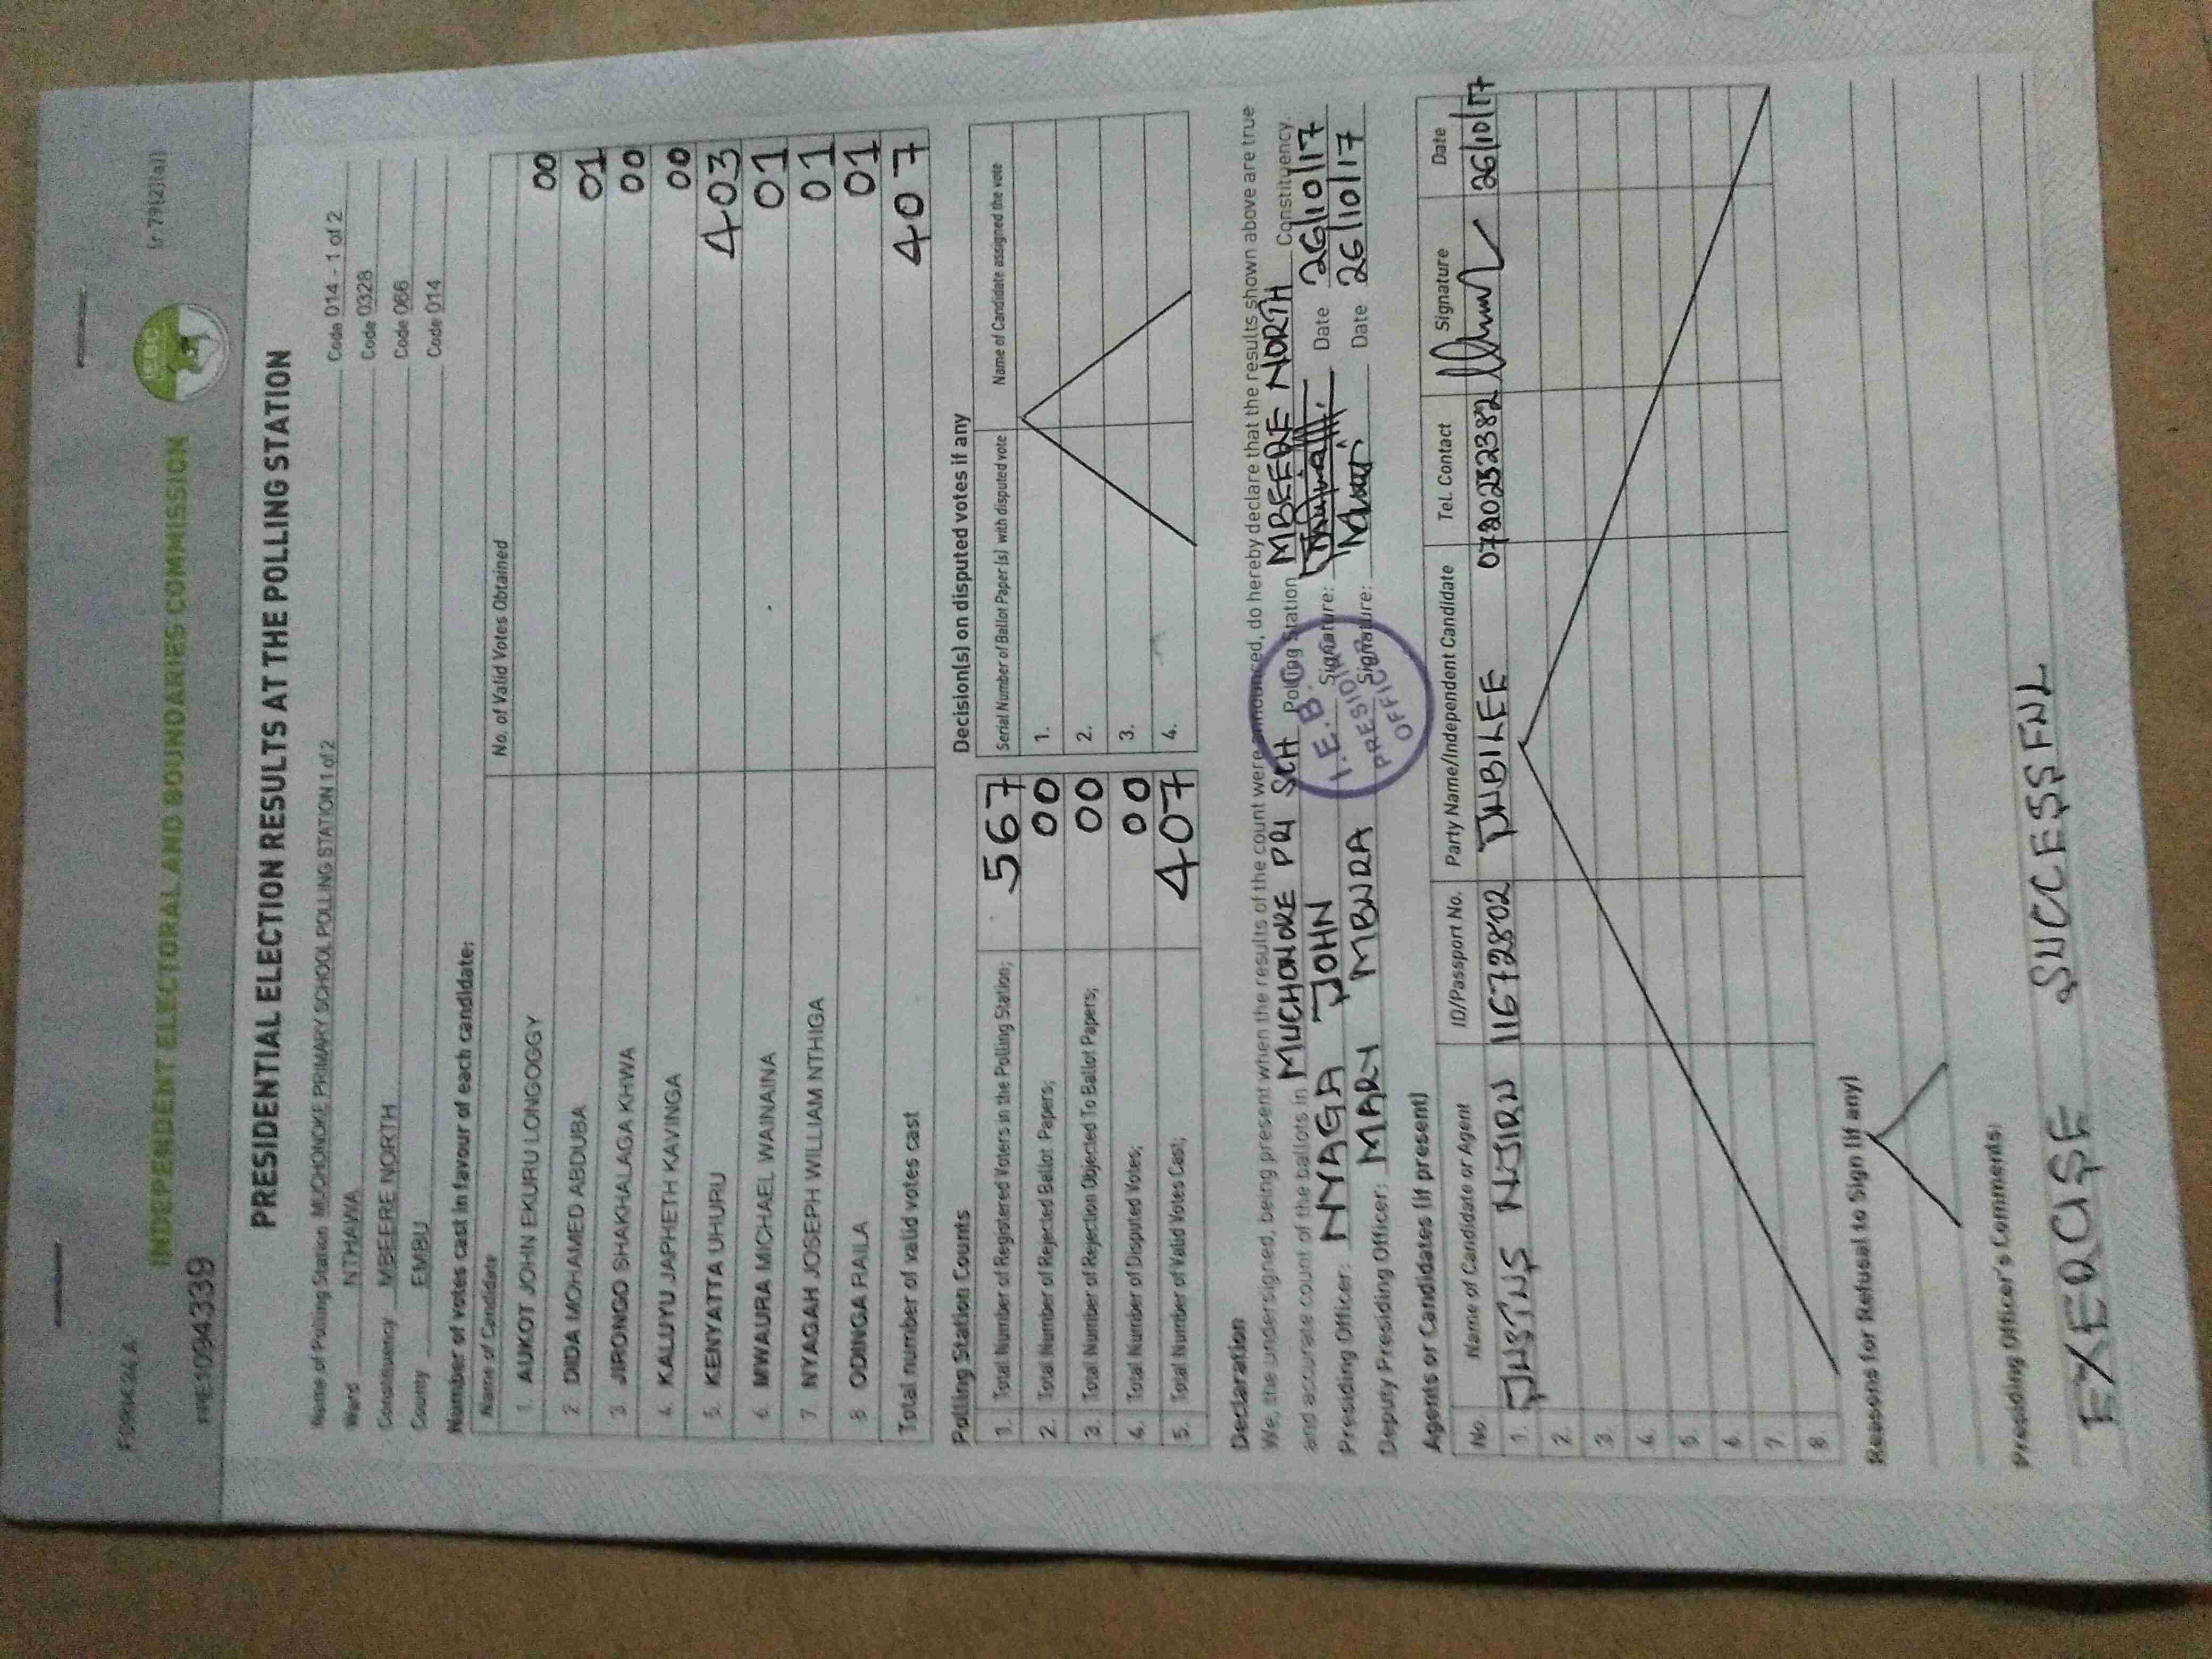 FORM 34 A (r 79(2)(a))
INDEPENDENT ELECTORAL AND BOUNDARIES COMMISSION
IEBC
PRE1094339
PRESIDENTIAL ELECTION RESULTS AT THE POLLING STATION
Name of Polling Station MUCHONOKE PRIMARY SCHOOL POLLING STATION 1 of 2 Code 014 - 1 of 2
Ward NTHAWA Code 0328
Constituency MBEERE NORTH Code 066
County EMBU Code 014
Number of votes cast in favour of each candidate:
Name of Candidate No. of Valid Votes Obtained
1. AUKOT JOHN EKURU LONGOGGY 00
2. DIDA MOHAMED ABDUBA 01
3. JIRONGO SHAKHALAGA KHWA 00
4. KALUYU JAPHETH KAVINGA 00
5. KENYATTA UHURU 403
6. MWAURA MICHAEL WAINAINA 01
7. NYAGAH JOSEPH WILLIAM NTHIGA 01
8. ODINGA RAILA 01
Total number of valid votes cast 407
Polling Station Counts
1. Total Number of Registered Voters in the Polling Station; 567
2. Total Number of Rejected Ballot Papers; 00
3. Total Number of Rejection Objected To Ballot Papers; 00
4. Total Number of Disputed Votes; 00
5. Total Number of Valid Votes Cast; 407
Decision(s) on disputed votes if any
Serial Number of Ballot Paper (s) with disputed vote Name of Candidate assigned the vote
1.
2.
3.
4.
Declaration
We, the undersigned, being present when the results of the count were announced, do hereby declare that the results shown above are true
and accurate count of the ballots in MUCHONOKE PRI SCH Polling Station MBEERE NORTH Constituency.
Presiding Officer: NYAGA JOHN Signature: Date 26/10/17
Deputy Presiding Officer: MARY MBURA Signature: Date 26/10/17
I.E.B.C
PRESIDING
OFFICER
Agents or Candidates (if present)
No Name of Candidate or Agent ID/Passport No. Party Name/Independent Candidate Tel. Contact Signature Date
1. JUSTUS NJIRU 11672802 JUBILEE 0720232382 26/10/17
2.
3.
4.
5.
6.
7.
8.
Reasons for Refusal to Sign (if any)
Presiding Officer's Comments:
EXERCISE SUCCESSFUL